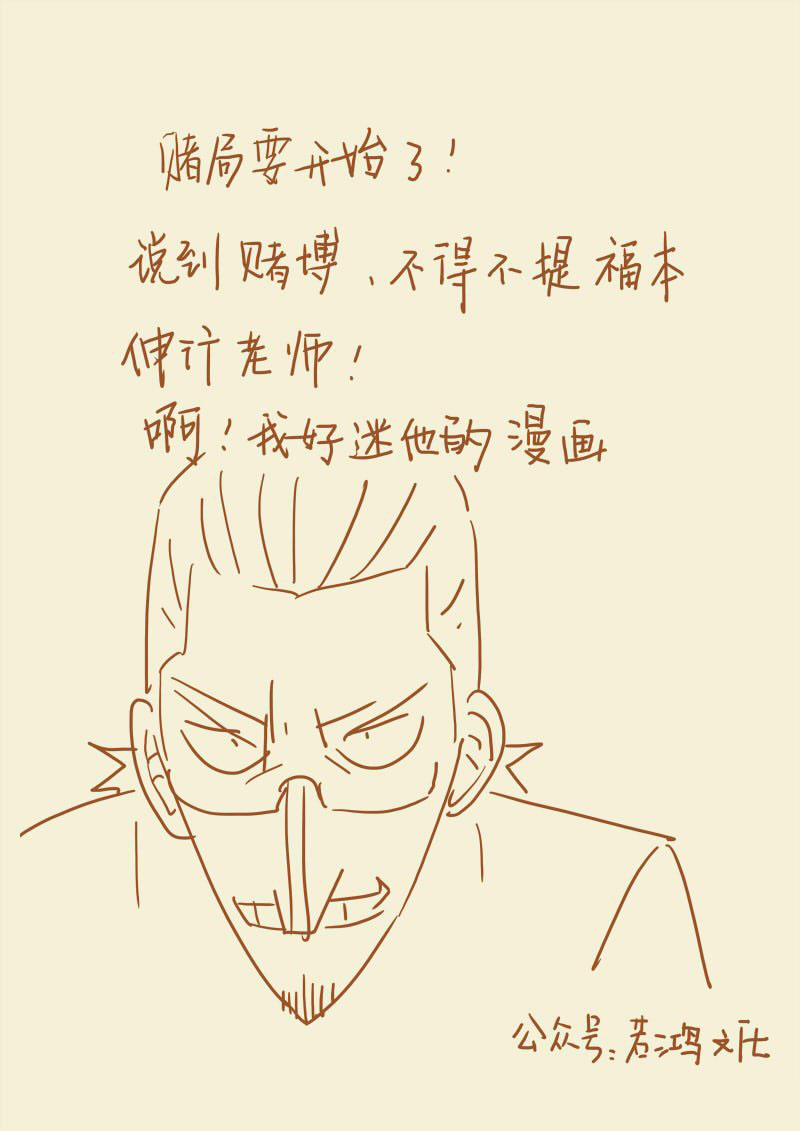 赌局要开始了！
说到赌博、不得不提福本
伸行老师！
啊！我好迷他的漫画
公众号：若鸿文化